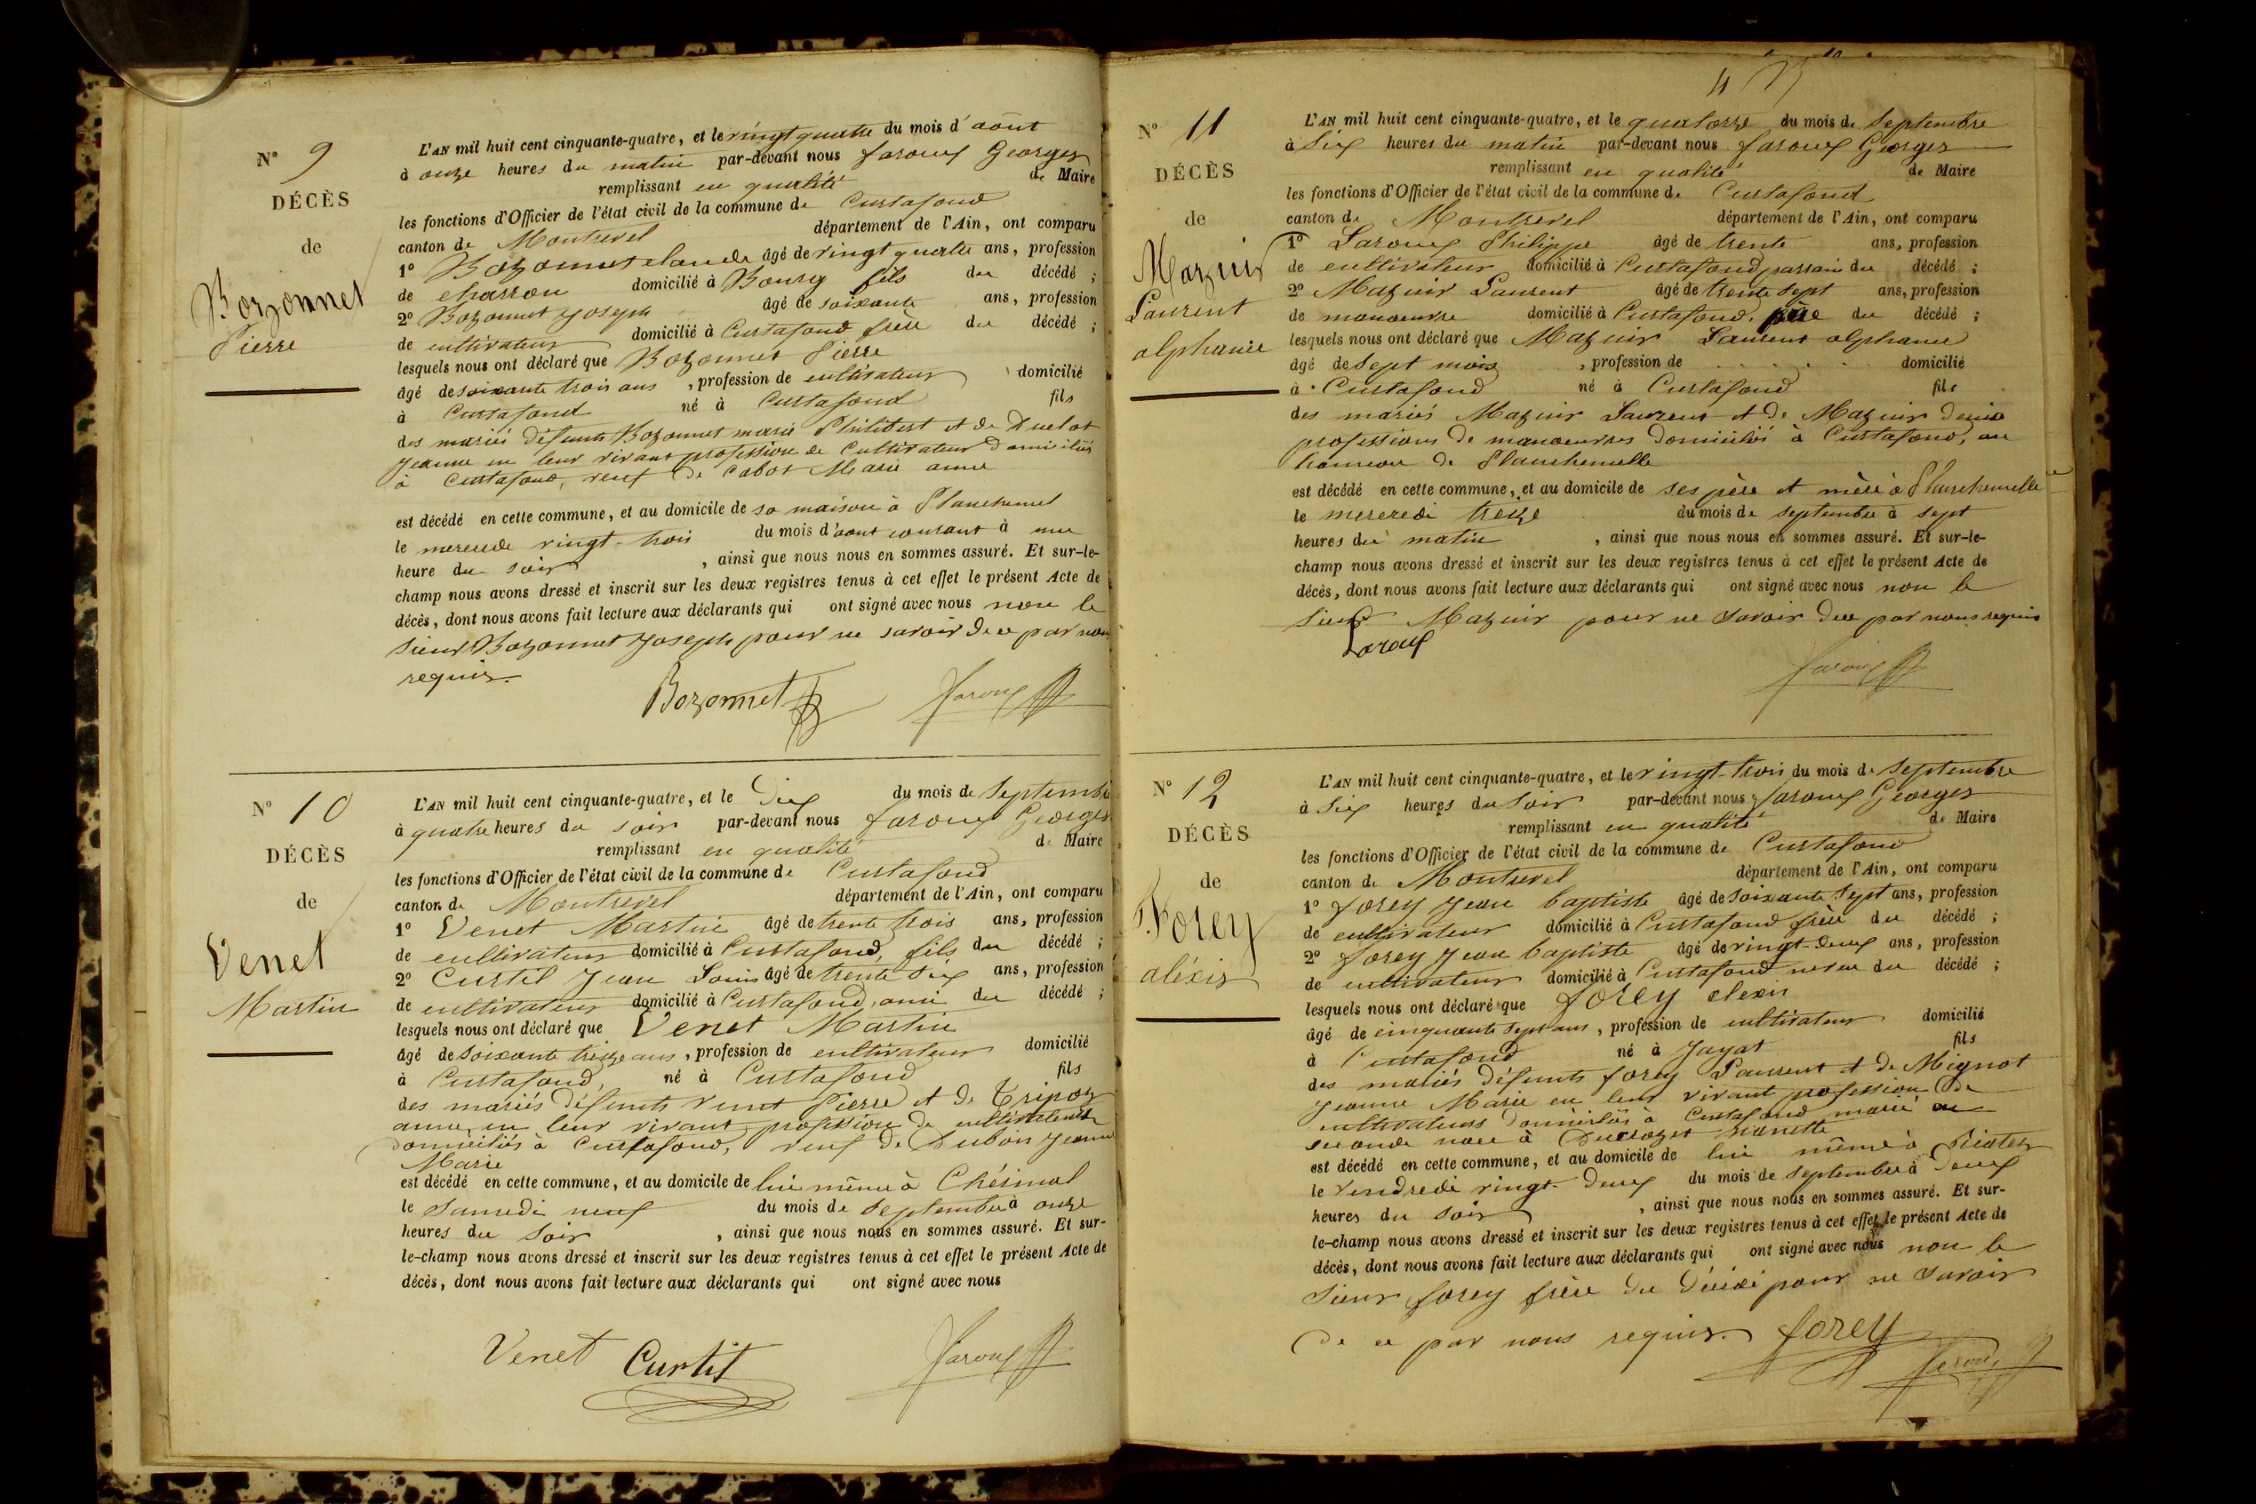 N° 9
DÉCÈS
de
Bozonnet
Pierre
L'AN mil huit cent cinquante-quatre, et le vingt quatre du mois d'août
à onze heures du matin par-devant nous Jaroux Georges
remplissant en qualité de Maire
les fonctions d'Officier de l'état civil de la commune de Curtafond
canton de Montrevel département de l'Ain, ont comparu
1° Bozonnet claude âgé de vingt quatre ans, profession
de charron domicilié à Bourg fils du décédé ;
2° Bozonnet Joseph âgé de soixante ans, profession
de cultivateur domicilié à Curtafond frère du décédé ;
lesquels nous ont déclaré que Bozonnet Pierre
âgé de soixante trois ans , profession de cultivateur domicilié
à Curtafond né à Curtafond fils
des mariés défunts Bozonnet marie Philibert et de Duclot
Jeanne en leur vivant profession de cultivateur domiciliés
à Curtafond, veuf de Cabot Marie anne
est décédé en cette commune, et au domicile de sa maison à Planchemel
le mercredi vingt-trois du mois d'août courant à une
heure du soir , ainsi que nous nous en sommes assuré. Et sur-le-
champ nous avons dressé et inscrit sur les deux registres tenus à cet effet le présent Acte de
décès, dont nous avons fait lecture aux déclarants qui ont signé avec nous non le
sieur Bozonnet Joseph pour ne savoir de ce par nous
requis.
Bozonnet Jaroux
N° 10
DÉCÈS
de
Venet
Martin
L'AN mil huit cent cinquante-quatre, et le Dix du mois de Septembre
à quatre heures du soir par-devant nous Jaroux Georges
remplissant en qualité de Maire
les fonctions d'Officier de l'état civil de la commune de Curtafond
canton de Montrevel département de l'Ain, ont comparu
1° Venet Martin âgé de trente trois ans, profession
de cultivateur domicilié à Curtafond, fils du décédé ;
2° Curtil Jean Louis âgé de trente six ans, profession
de cultivateur domicilié à Curtafond, ami du décédé ;
lesquels nous ont déclaré que Venet Martin
âgé de soixante treize ans , profession de cultivateur domicilié
à Curtafond, né à Curtafond fils
des mariés défunts venet Pierre et de Tripoz
anne, en leur vivant profession de cultivateurs
domiciliés à Curtafond, veuf de Dubois Jeanne
Marie
est décédé en cette commune, et au domicile de lui même à Chésinal
le samedi neuf du mois de septembre à onze
heures du soir , ainsi que nous nous en sommes assuré. Et sur-
le-champ nous avons dressé et inscrit sur les deux registres tenus à cet effet le présent Acte de
décès, dont nous avons fait lecture aux déclarants qui ont signé avec nous
Venet Curtil Jaroux
N° 11
DÉCÈS
de
Mazuir
Laurent
alphanie
L'AN mil huit cent cinquante-quatre, et le quatorze du mois de Septembre
à Six heures du matin par-devant nous Jaroux Georges
remplissant en qualité de Maire
les fonctions d'Officier de l'état civil de la commune de Curtafond
canton de Montrevel département de l'Ain, ont comparu
1° Laroux Philippe âgé de trente ans, profession
de cultivateur domicilié à Curtafond parrain du décédé ;
2° Mazuir Laurent âgé de trente sept ans, profession
de manoeuvre domicilié à Curtafond, père du décédé ;
lesquels nous ont déclaré que Mazuir Laurent alphanie
âgé de sept mois , profession de domicilié
à Curtafond né à Curtafond fils
des mariés Mazuir Laurent et de Mazuir denise
professions de manoeuvres domiciliés à Curtafond, au
hameau de Planchemelle
est décédé en cette commune, et au domicile de ses père et mère à Planchemelle
le mercredi treize du mois de septembre à sept
heures du matin , ainsi que nous nous en sommes assuré. Et sur-le-
champ nous avons dressé et inscrit sur les deux registres tenus à cet effet le présent Acte de
décès, dont nous avons fait lecture aux déclarants qui ont signé avec nous non le
Sieur Mazuir pour ne savoir de ce par nous requis
Laroux
Jaroux
N° 12
DÉCÈS
de
Forey
aléxis
L'AN mil huit cent cinquante-quatre, et le vingt-trois du mois de Septembre
à Six heures du soir par-devant nous Jaroux Georges
remplissant en qualité de Maire
les fonctions d'Officier de l'état civil de la commune de Curtafond
canton de Montrevel département de l'Ain, ont comparu
1° forey Jean baptiste âgé de soixante sept ans, profession
de cultivateur domicilié à Curtafond frère du décédé ;
2° forey Jean baptiste âgé de vingt-deux ans, profession
de cultivateur domicilié à Curtafond neveu du décédé ;
lesquels nous ont déclaré que forey alexis
âgé de cinquante sept ans , profession de cultivateur domicilié
à Curtafond né à Jayat fils
des mariés défunts forey Laurent et de Mignot
Jeanne Marie en leur vivant profession de
cultivateurs domiciliés à Curtafond marié en
seconde noce à nanette
est décédé en cette commune, et au domicile de lui même à
le vendredi vingt-deux du mois de septembre à deux
heures du soir , ainsi que nous nous en sommes assuré. Et sur-
le-champ nous avons dressé et inscrit sur les deux registres tenus à cet effet le présent Acte de
décès, dont nous avons fait lecture aux déclarants qui ont signé avec nous non le
Sieur forey frère du décédé pour ne savoir
de ce par nous requis. forey
Jaroux